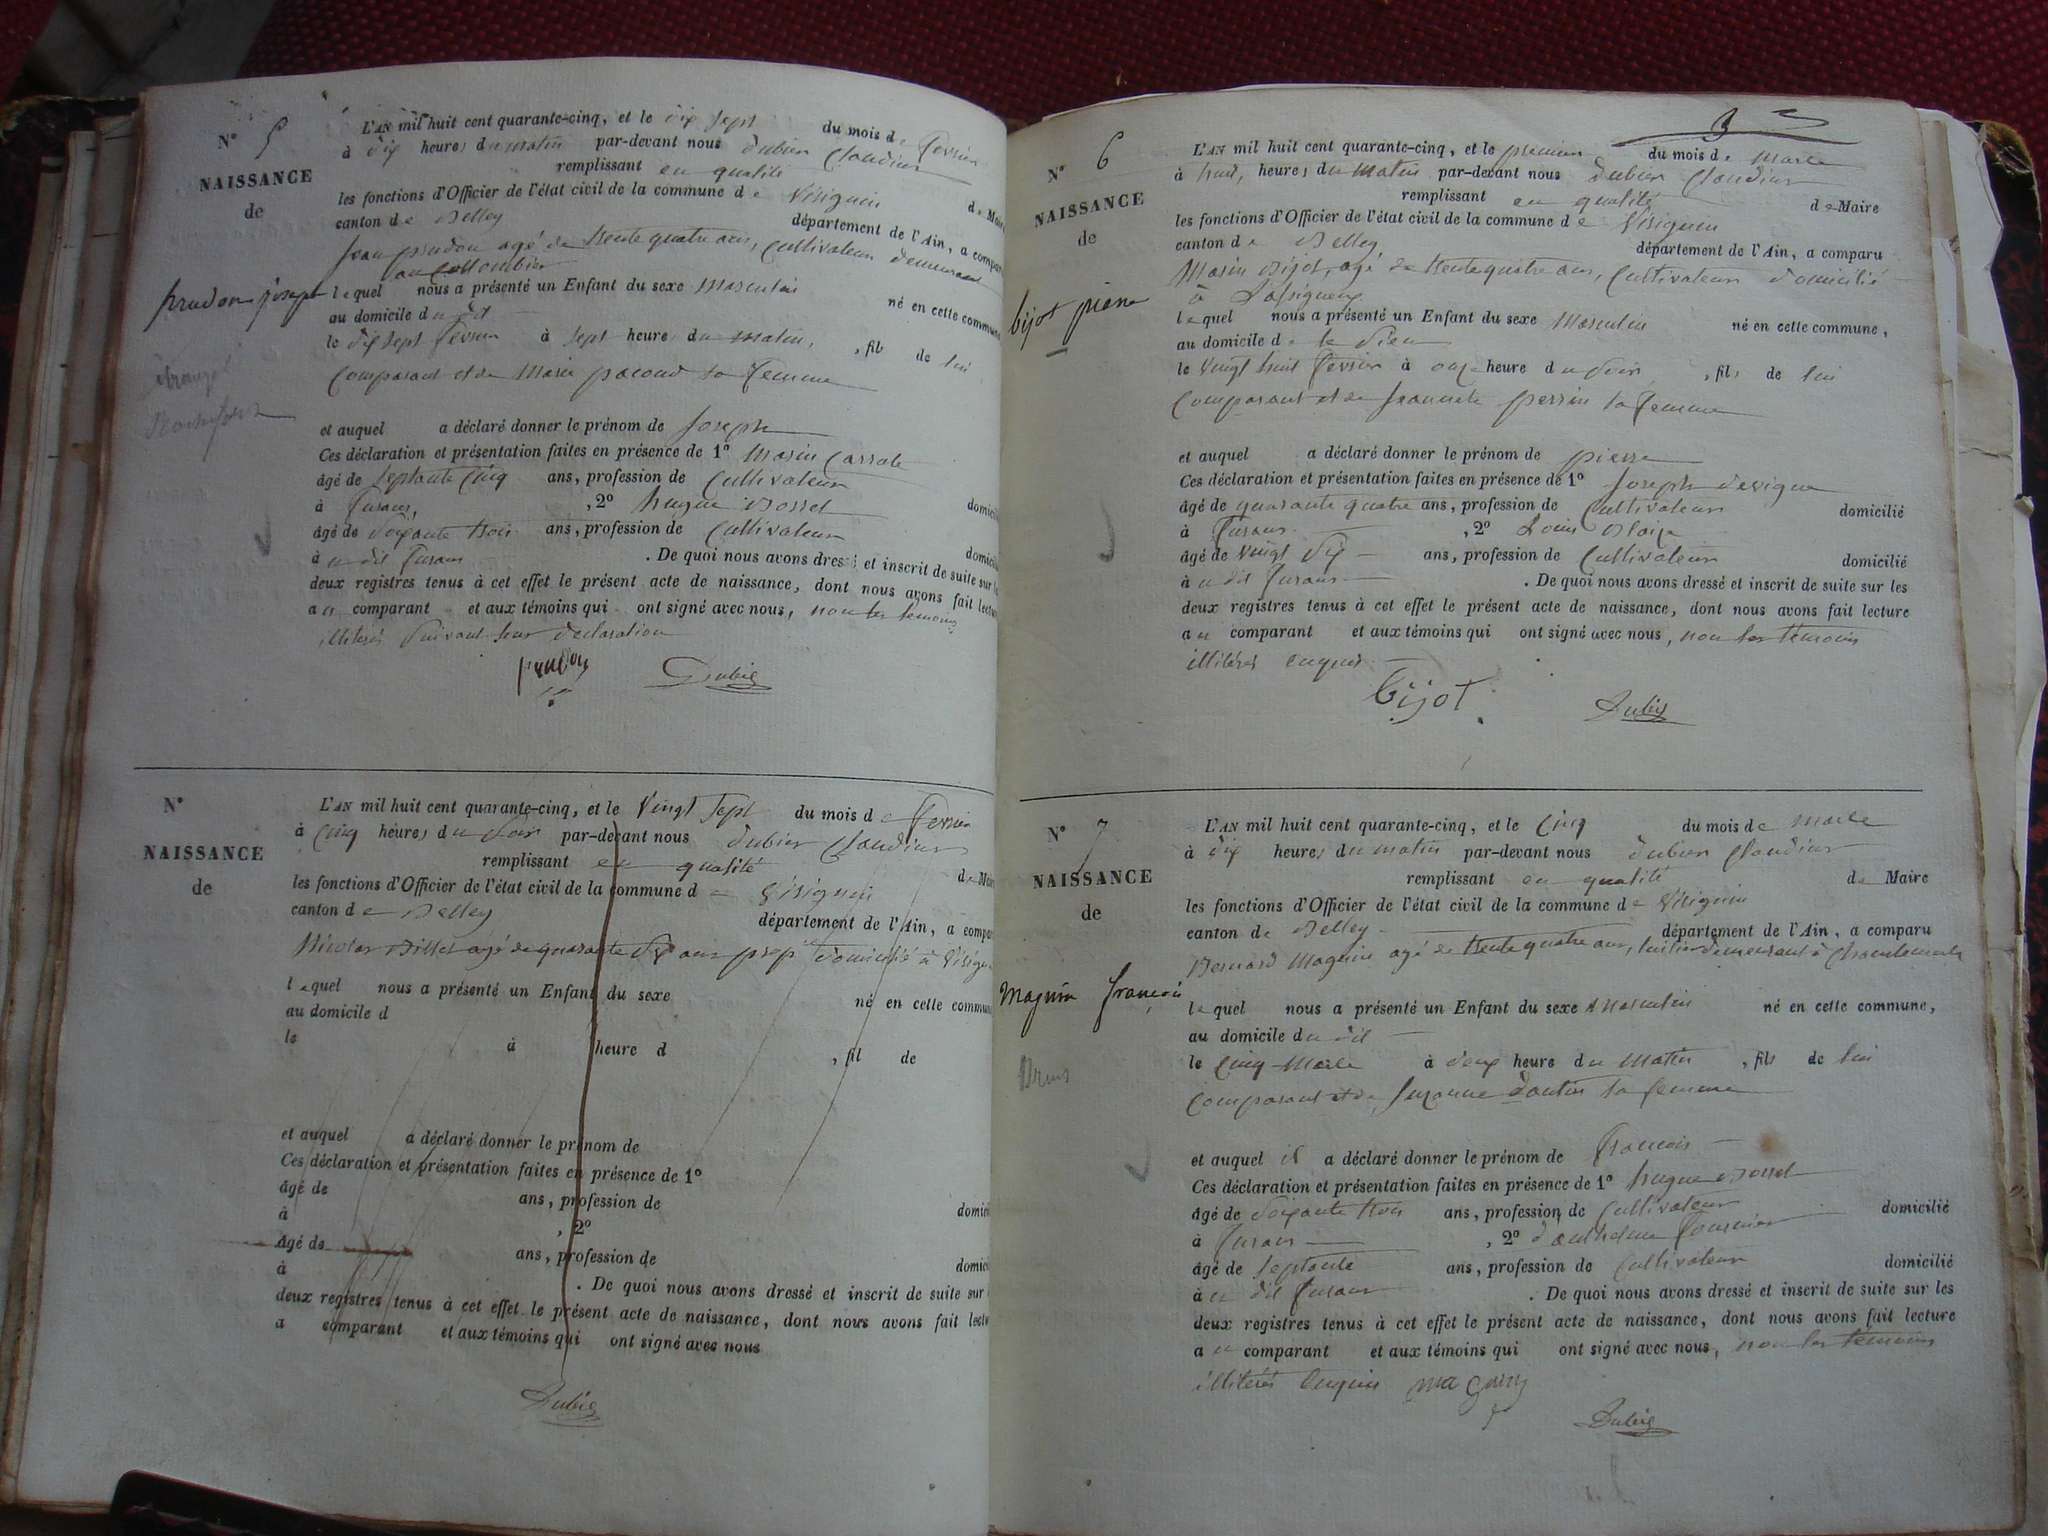 N° 5
NAISSANCE
de
prudon joseph
L'AN mil huit cent quarante-cinq, et le dix sept du mois de fevrier
à dix heures du matin par-devant nous dubier Claudius
remplissant en qualité de Maire
les fonctions d'Officier de l'état civil de la commune de Vésignin
canton de Belley département de l'Ain, a comparu
Jean prudon agé de trente quatre ans, Cultivateur demeurant
au Collombier
lequel nous a présenté un Enfant du sexe Masculin né en cette commune
au domicile du dit
le dix sept fevrier à sept heure du matin, , fils de lui
Comparant et de Marie pacoud sa femme
et auquel a déclaré donner le prénom de Joseph
Ces déclaration et présentation faites en présence de 1° Marin
âgé de septante cinq ans, profession de Cultivateur
à furans, , 2° hugue Bosset domicilié
âgé de soixante trois ans, profession de Cultivateur
à u dit furans . De quoi nous avons dressé et inscrit de suite sur les
deux registres tenus à cet effet le présent acte de naissance, dont nous avons fait lecture
au comparant et aux témoins qui ont signé avec nous, non les temoins
illiterés suivant leur declaration
prudon Dubier
N°
NAISSANCE
de
L'AN mil huit cent quarante-cinq, et le Vingt sept du mois de fevrier
à cinq heures du soir par-devant nous dubier Claudius
remplissant en qualité de Maire
les fonctions d'Officier de l'état civil de la commune de Vésignin
canton de Belley département de l'Ain, a comparu
Nicolas Billet agé de quarante dix ans prop domicilié à Vésignin
lequel nous a présenté un Enfant du sexe né en cette commune
au domicile d
le à heure d , fil de
et auquel a déclaré donner le prénom de
Ces déclaration et présentation faites en présence de 1°
âgé de ans, profession de
à , 2° domicilié
âgé de ans, profession de
à domicilié
. De quoi nous avons dressé et inscrit de suite sur
deux registres tenus à cet effet le présent acte de naissance, dont nous avons fait lecture
a comparant et aux témoins qui ont signé avec nous
Dubier
3
N° 6
NAISSANCE
de
bijot piere
L'AN mil huit cent quarante-cinq, et le premier du mois de Mars
à huit, heures du Matin par-devant nous dubier Claudius
remplissant en qualité de Maire
les fonctions d'Officier de l'état civil de la commune de Vésignin
canton de Belley département de l'Ain, a comparu
Marin Bijot, agé de trente quatre ans, Cultivateur domicilié
à
lequel nous a présenté un Enfant du sexe Masculin né en cette commune,
au domicile de
le Vingt huit fevrier à onze heure du soir , fils de lui
Comparant et de Jeannete perrin sa femme
et auquel a déclaré donner le prénom de pierre
Ces déclaration et présentation faites en présence de 1° Joseph
âgé de quarante quatre ans, profession de Cultivateur domicilié
à furans , 2° Louis
âgé de Vingt dix ans, profession de Cultivateur domicilié
à u dit furans . De quoi nous avons dressé et inscrit de suite sur les
deux registres tenus à cet effet le présent acte de naissance, dont nous avons fait lecture
au comparant et aux témoins qui ont signé avec nous, non les temoins
illiterés enquis
bijot Dubier
N° 7
NAISSANCE
de
Magnin françois
L'AN mil huit cent quarante-cinq, et le cinq du mois de Mars
à dix heures du matin par-devant nous dubier Claudius
remplissant en qualité de Maire
les fonctions d'Officier de l'état civil de la commune de Vésignin
canton de Belley département de l'Ain, a comparu
Bernard Magnin agé de trente quatre ans, demeurant à
lequel nous a présenté un Enfant du sexe Masculin né en cette commune,
au domicile du dit
le cinq Mars à deux heure du Matin , fils de lui
Comparant et de Suzanne sa femme
et auquel il a déclaré donner le prénom de francois
Ces déclaration et présentation faites en présence de 1° hugue Bosset
âgé de soixante trois ans, profession de Cultivateur domicilié
à furans , 2° d'anthelme fournier
âgé de septante ans, profession de Cultivateur domicilié
à u dit furans . De quoi nous avons dressé et inscrit de suite sur les
deux registres tenus à cet effet le présent acte de naissance, dont nous avons fait lecture
au comparant et aux témoins qui ont signé avec nous, non les temoins
illiterés enquis magnin
Dubier